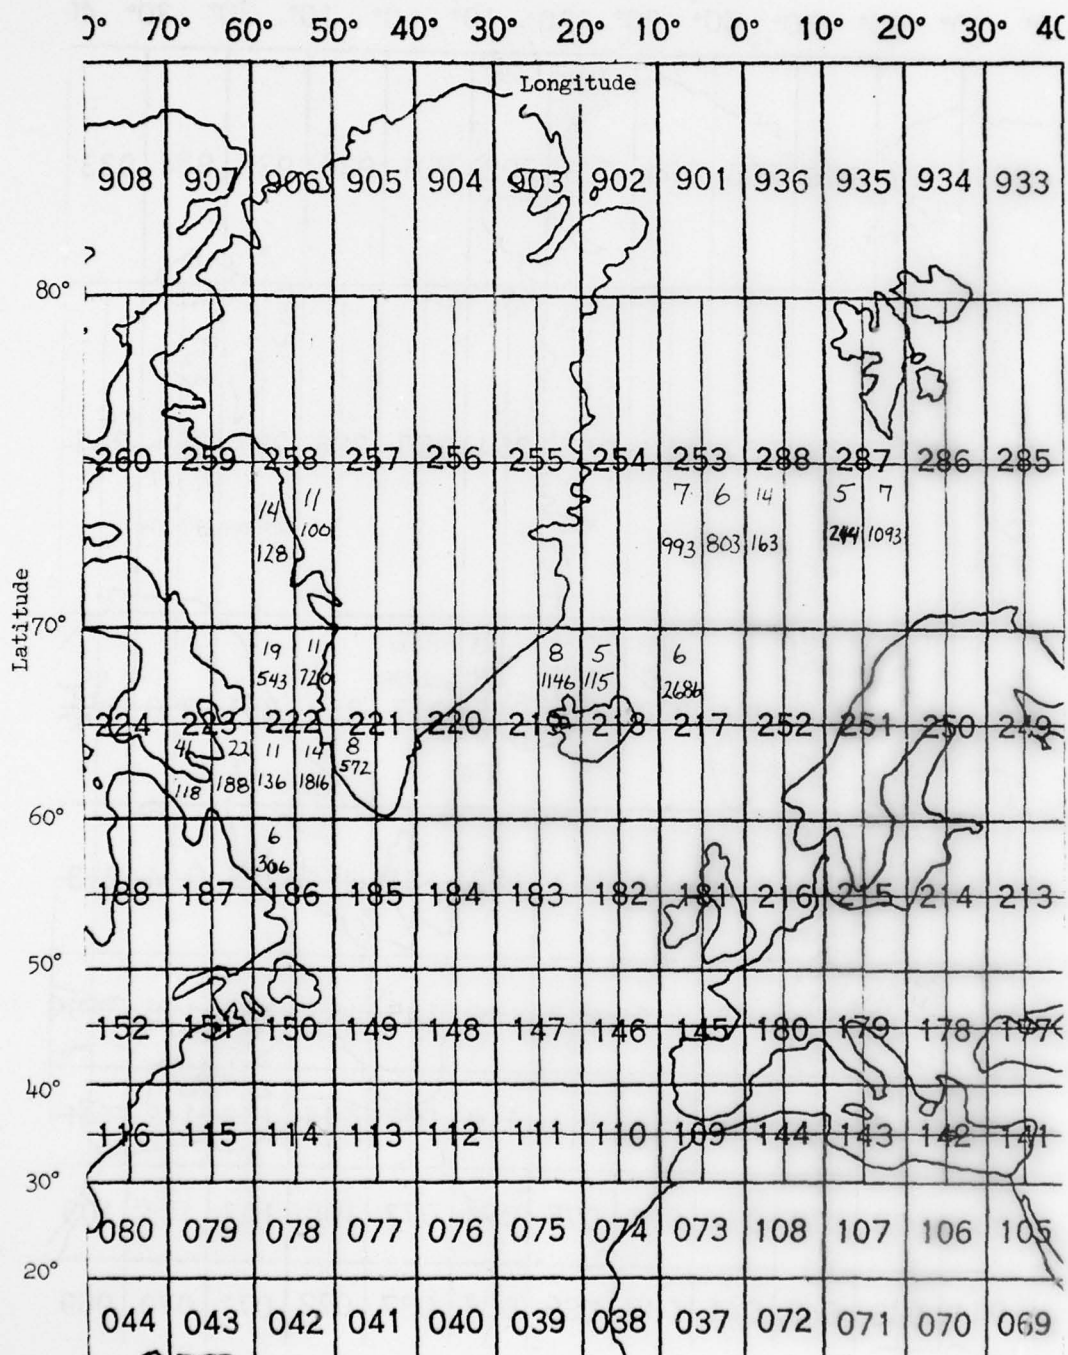 0° 70° 60° 50° 40° 30° 20° 10° 0° 10° 20° 30° 40
Longitude
908 907 906 905 904 903 902 901 936 935 934 933
80°
260 259 258 257 256 255 254 253 288 287 286 285
14 11 7 6 14 5 7
128 100 993 803 163 244 1093
Latitude
70°
19 11 8 5 6
543 720 1146 115 2686
224 223 222 221 220 219 218 217 252 251 250 249
41 22 11 14 8
118 188 136 1816 572
60°
6
306
188 187 186 185 184 183 182 181 216 215 214 213
50°
152 151 150 149 148 147 146 145 180 179 178 177
40°
116 115 114 113 112 111 110 109 144 143 142 141
30°
080 079 078 077 076 075 074 073 108 107 106 105
20°
044 043 042 041 040 039 038 037 072 071 070 069